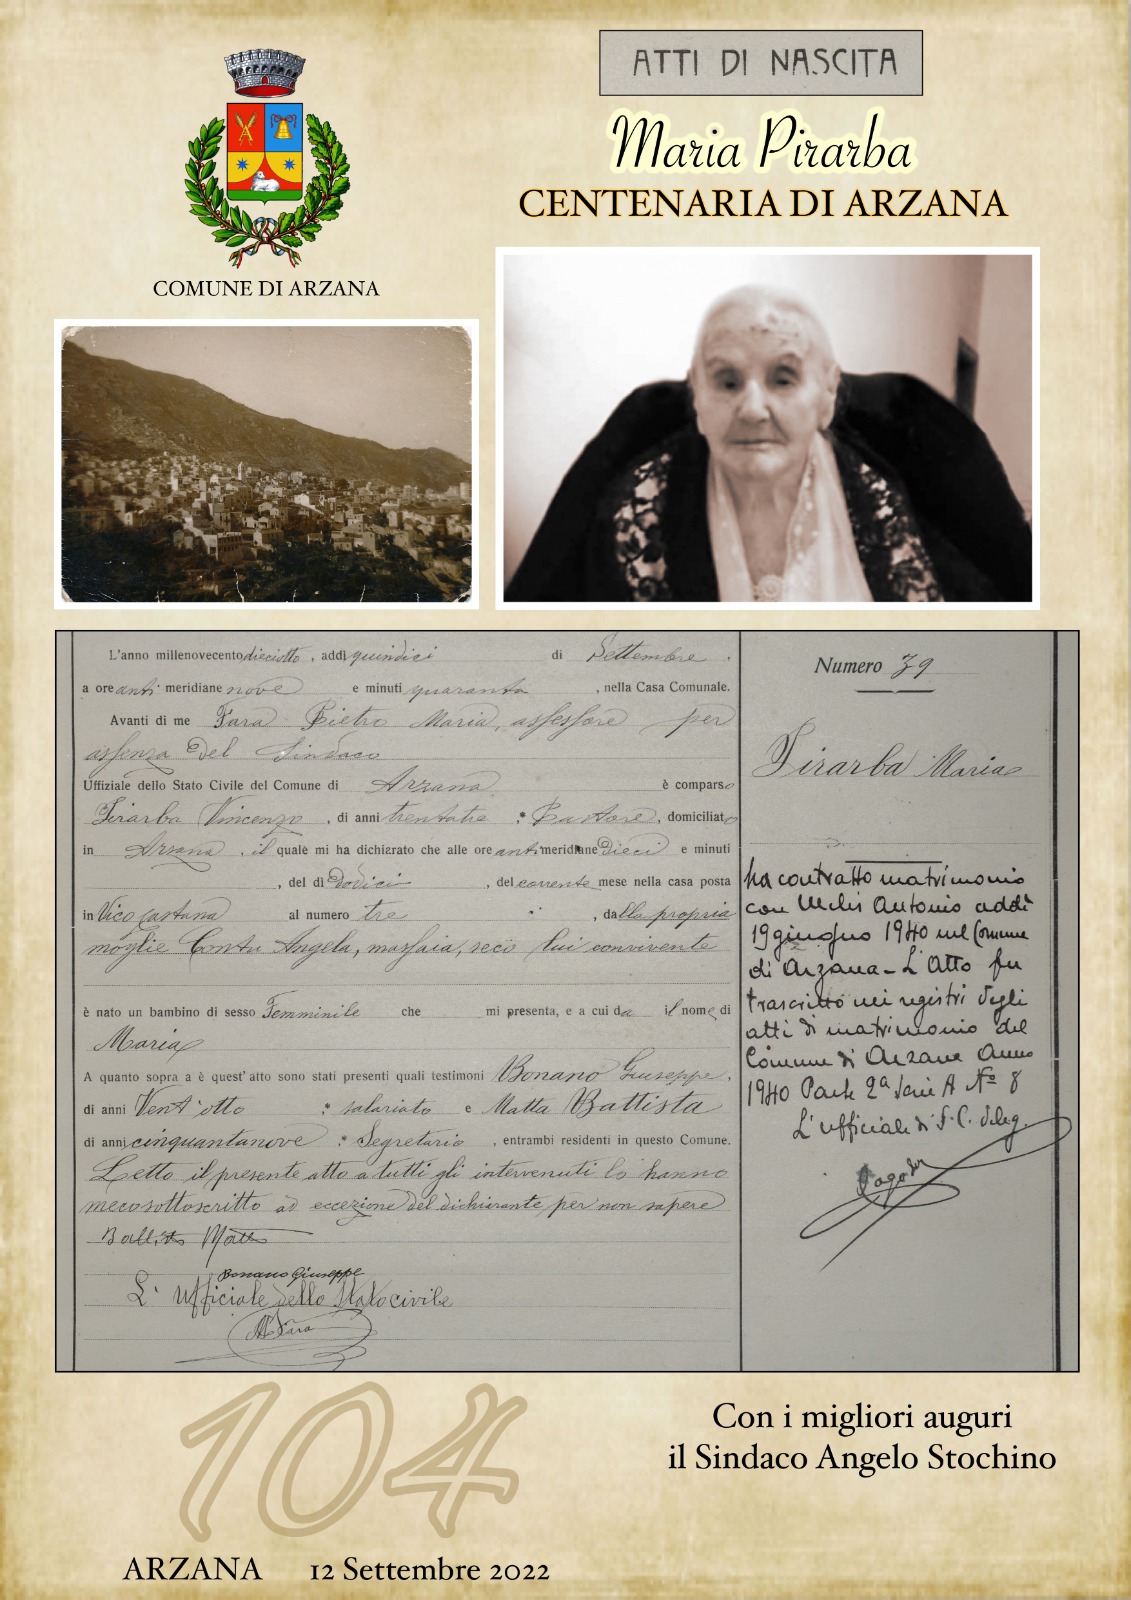 ATTI DI NASCITA
Maria Pirarba
CENTENARIA DI ARZANA
COMUNE DI ARZANA
L'anno millenovecento dieciotto, addì quindici di Settembre,
a ore anti meridiane nove e minuti quaranta, nella Casa Comunale.
Avanti di me Fara Pietro Maria, assessore per
assenza del Sindaco
Uffiziale dello Stato Civile del Comune di Arzana è comparso
Pirarba Vincenzo, di anni trentatre, Pastore, domiciliato
in Arzana, il quale mi ha dichiarato che alle ore anti meridiane Dieci e minuti
, del dì Dodici, del corrente mese nella casa posta
in Vico al numero tre, dalla propria
moglie Contu Angela, massaia, seco lui convivente
è nato un bambino di sesso Femminile che mi presenta, e a cui da il nome di
Maria
A quanto sopra a è quest'atto sono stati presenti quali testimoni Bonano Giuseppe,
di anni Vent'otto, salariato e Matta Battista
di anni cinquantanove, Segretario, entrambi residenti in questo Comune.
Letto il presente atto a tutti gli intervenuti lo hanno
meco sottoscritto ad eccezione del dichiarante, per non sapere
Battista Matta
Bonano Giuseppe
L'Ufficiale dello Stato civile
Fara
Numero 39
Pirarba Maria
ha contratto matrimonio
con Melis Antonio addì
19 giugno 1940 nel Comune
di Arzana - L'Atto fu
trascritto nei registri degli
atti di matrimonio del
Comune di Arzana Anno
1940 Parte 2a Serie A No 8
L'ufficiale di S.C. deleg.
104
Con i migliori auguri
il Sindaco Angelo Stochino
ARZANA 12 Settembre 2022